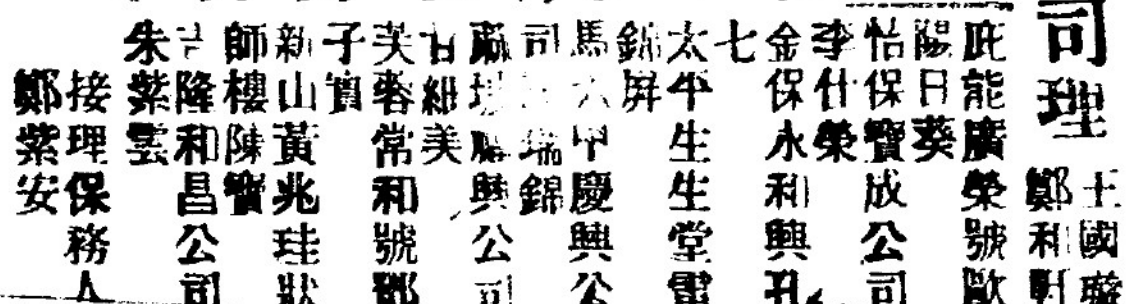 司理
王國
鄭和
庇能廣榮號歐
陽日葵
怡保寶成公司
李仕榮
金保永和興孔
七
太平生生堂
錦屏
馬六甲慶興公
司 瑞錦
興公司
甘細美
芙蓉常和號鄧
子寶
新山黃兆珪狀
師樓陳寶
吉隆和昌公司
朱紫雲
接理保務人
鄭紫安